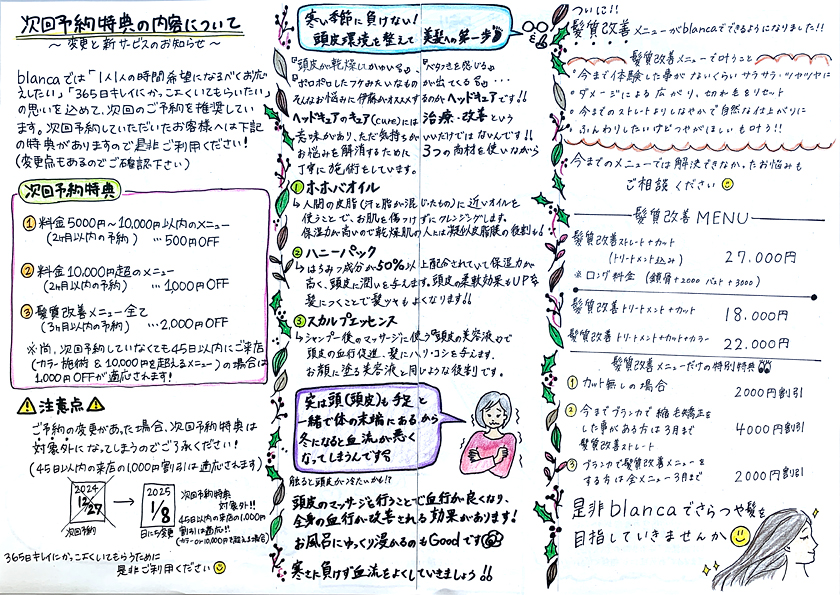 次回予約特典の内容について
～変更と新サービスのお知らせ～
blancaでは「1人1人の時間希望になるべくお応
えしたい」「365日キレイにかっこよくいてもらいたい」
の思いを込めて、次回のご予約を推奨してい
ます。次回予約していただいたお客様へは下記
の特典がありますので是非ご利用ください！
(変更点もあるのでご確認下さい)
次回予約特典
① 料金5000円～10,000円以内のメニュー
(2ヶ月以内の予約) …500円OFF
② 料金10,000円超のメニュー
(2ヶ月以内の予約) …1,000円OFF
③ 髪質改善メニュー全て
(3ヶ月以内の予約) …2,000円OFF
※尚、次回予約していなくても45日以内にご来店
(カラー施術 & 10,000円を超えるメニュー)の場合は
1,000円OFFが適応されます！
⚠注意点⚠
ご予約の変更があった場合、次回予約特典は
対象外になってしまうのでご了承ください！
(45日以内の来店の1,000円割引は適応されます)
2024
12/27
次回予約
→
2025
1/8
日にち変更
次回予約特典
対象外!!
45日以内の来店の1,000円
割引は適応!!
(カラーor10,000円を超える場合)
365日キレイにかっこよくいてもらうために
是非ご利用ください
寒い季節に負けない！
頭皮環境を整えて 美髪への第一歩
『頭皮が乾燥してかゆい』
『ベタつきを感じる』
『ポロポロしたフケみたいなもの
が出てくる』…
そんなお悩みに伊藤がオススメするのがヘッドキュアです!!
ヘッドキュアのキュア(cure)には 治療・改善という
意味があり、ただ気持ちがいいだけではないんです!!
お悩みを解消するために 3つの商材を使いながら
丁寧に施術をしています。
① ホホバオイル
↳人間の皮脂(汗と脂が混じたもの)に近いオイルを
使うことで、お肌を傷つけずにクレンジングします。
保湿力が高いので乾燥肌の人には疑似皮脂膜の役割も!
② ハニーパック
↳はちみつ成分が50%以上配合されていて保湿力が
高く、頭皮に潤いを与えます。頭皮の柔軟効果もUP
髪につくことで髪ツヤもよくなります!!
③ スカルプエッセンス
↳シャンプー後のマッサージに使う頭皮の美容液力で
頭皮の血行促進、髪にハリ・コシを与えます。
お顔に塗る美容液と同じような役割です。
実は頭(頭皮)も手足と
一緒で体の末端にあるから
冬になると血流が悪く
なってしまうんです
触ると頭皮が冷たいかも!?
頭皮のマッサージを行うことで血行が良くなり、
全身の血行が改善される効果があります！
お風呂にゆっくり浸かるのもGoodです
寒さに負けず血流をよくしていきましょう!!
ついに!!
髪質改善メニューがblancaでできるようになりました!!
髪質改善メニューで叶うこと
。今まで体験した事がないくらいサラサラ・ツヤツヤに
。ダメージによる広がり、切れ毛をリセット
。今までのストレートよりしなやかで自然な仕上がりに
ふんわりしたいけどツヤがほしいも叶う!!
今までのメニューでは解決できなかったお悩みも
ご相談ください
髪質改善MENU
髪質改善ストレート+カット
(トリートメント込み) 27.000円
※ロング料金(鎖骨+2000 バスト+3000)
髪質改善トリートメント+カット 18.000円
髪質改善トリートメント+カット+カラー 22.000円
髪質改善メニューだけの特別特典
① カット無しの場合 2000円割引
② 今までブランカで縮毛矯正を
した事がある方は3月まで 4000円割引
髪質改善ストレート
③ ブランカで髪質改善メニューを
する方は全メニュー3月まで 2000円割引
是非blancaでさらつや髪を
目指していきませんか